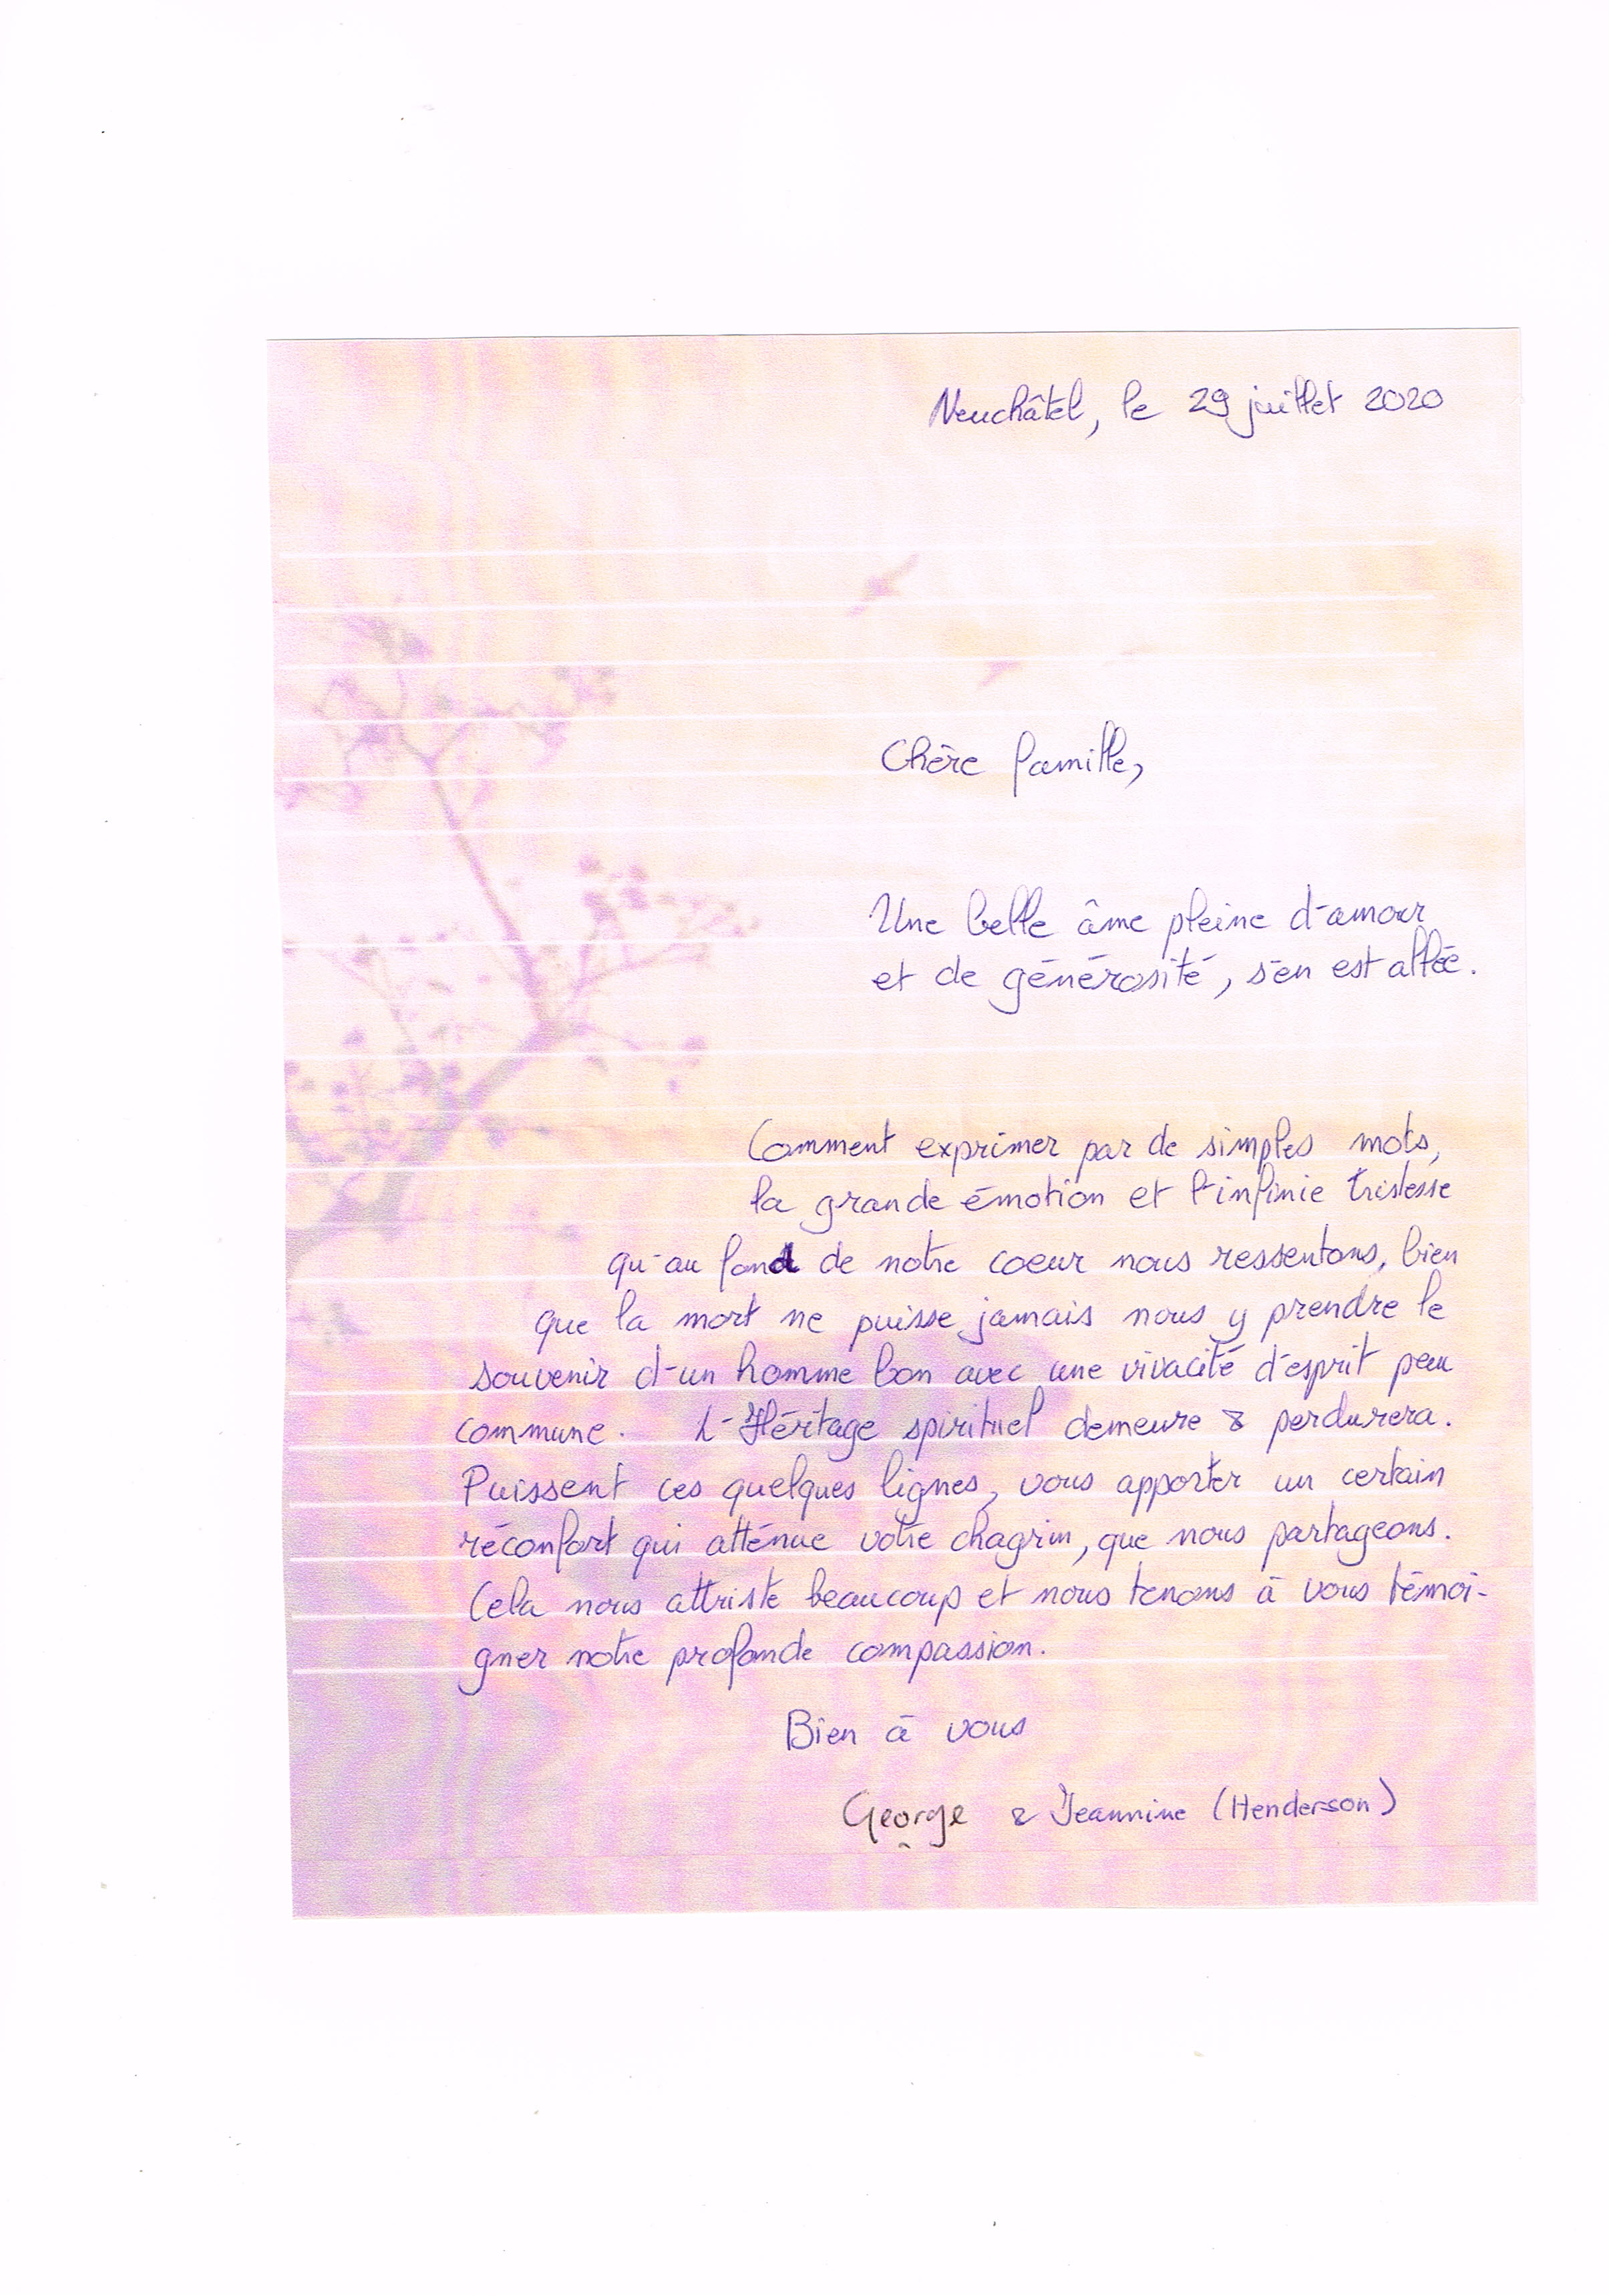 Neuchâtel, le 29 juillet 2020
Chère famille,
Une belle âme pleine d'amour
et de générosité, s'en est allée.
Comment exprimer par de simples mots,
la grande émotion et l'infinie tristesse
qu'au fond de notre coeur nous ressentons, bien
que la mort ne puisse jamais nous y prendre le
souvenir d'un homme bon avec une vivacité d'esprit peu
commune. L'Héritage spirituel demeure & perdurera.
Puissent ces quelques lignes, vous apporter un certain
réconfort qui atténue votre chagrin, que nous partageons.
Cela nous attriste beaucoup et nous tenons à vous témoi-
gner notre profonde compassion.
Bien à vous
George & Jeannine (Henderson)